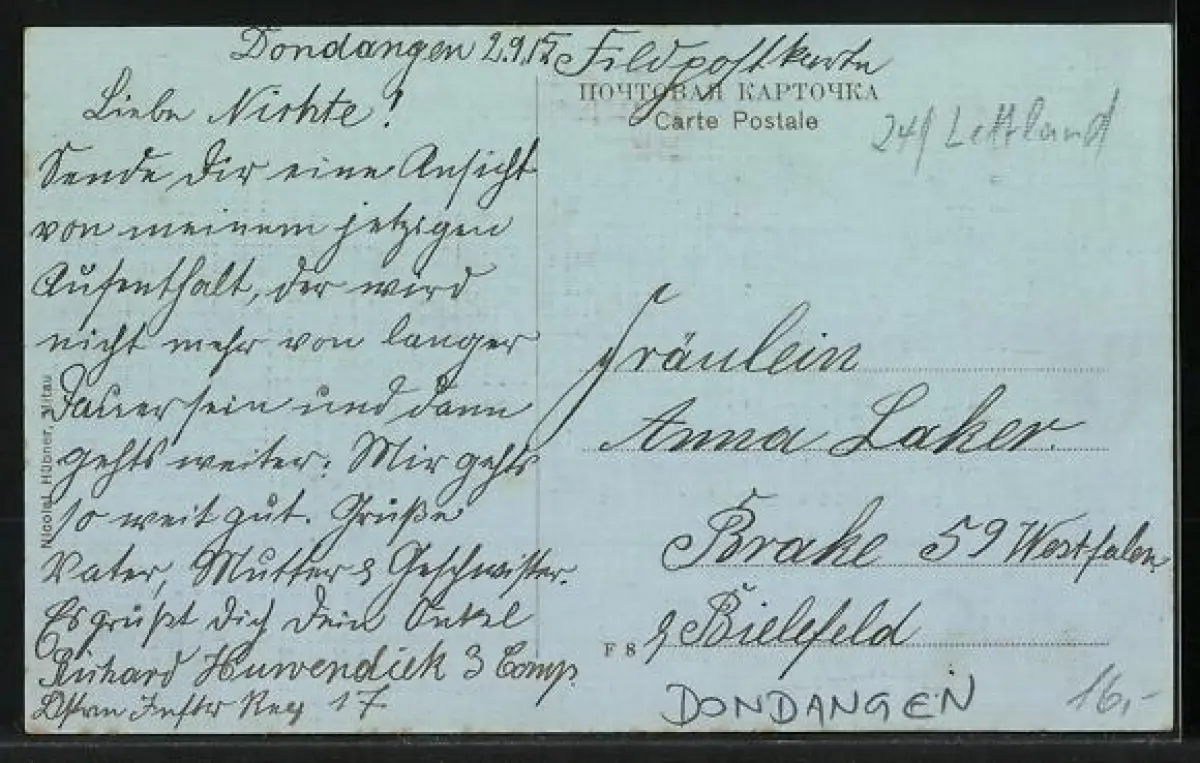 Dondangen 2.9.17
Feldpostkarte
ПОЧТОВАЯ КАРТОЧКА
Carte Postale
24/ Lettland
Liebe Nichte!
Sende Dir eine Ansicht
von meinem jetzigen
Aufenthalt, der wird
nicht mehr von langer
Dauer sein und dann
gehts weiter: Mir gehts
so weit gut. Grüße
Vater, Mutter & Geschwister.
Es grüßt Dich Dein Onkel
Richard Huwendiek 3 Comp.
Inftr Reg 17
Nicolai Hübner, Mitau
Fräulein
Anna Laker.
Brake 59 Westfalen
F 8
b Bielefeld
DONDANGEN
16,-